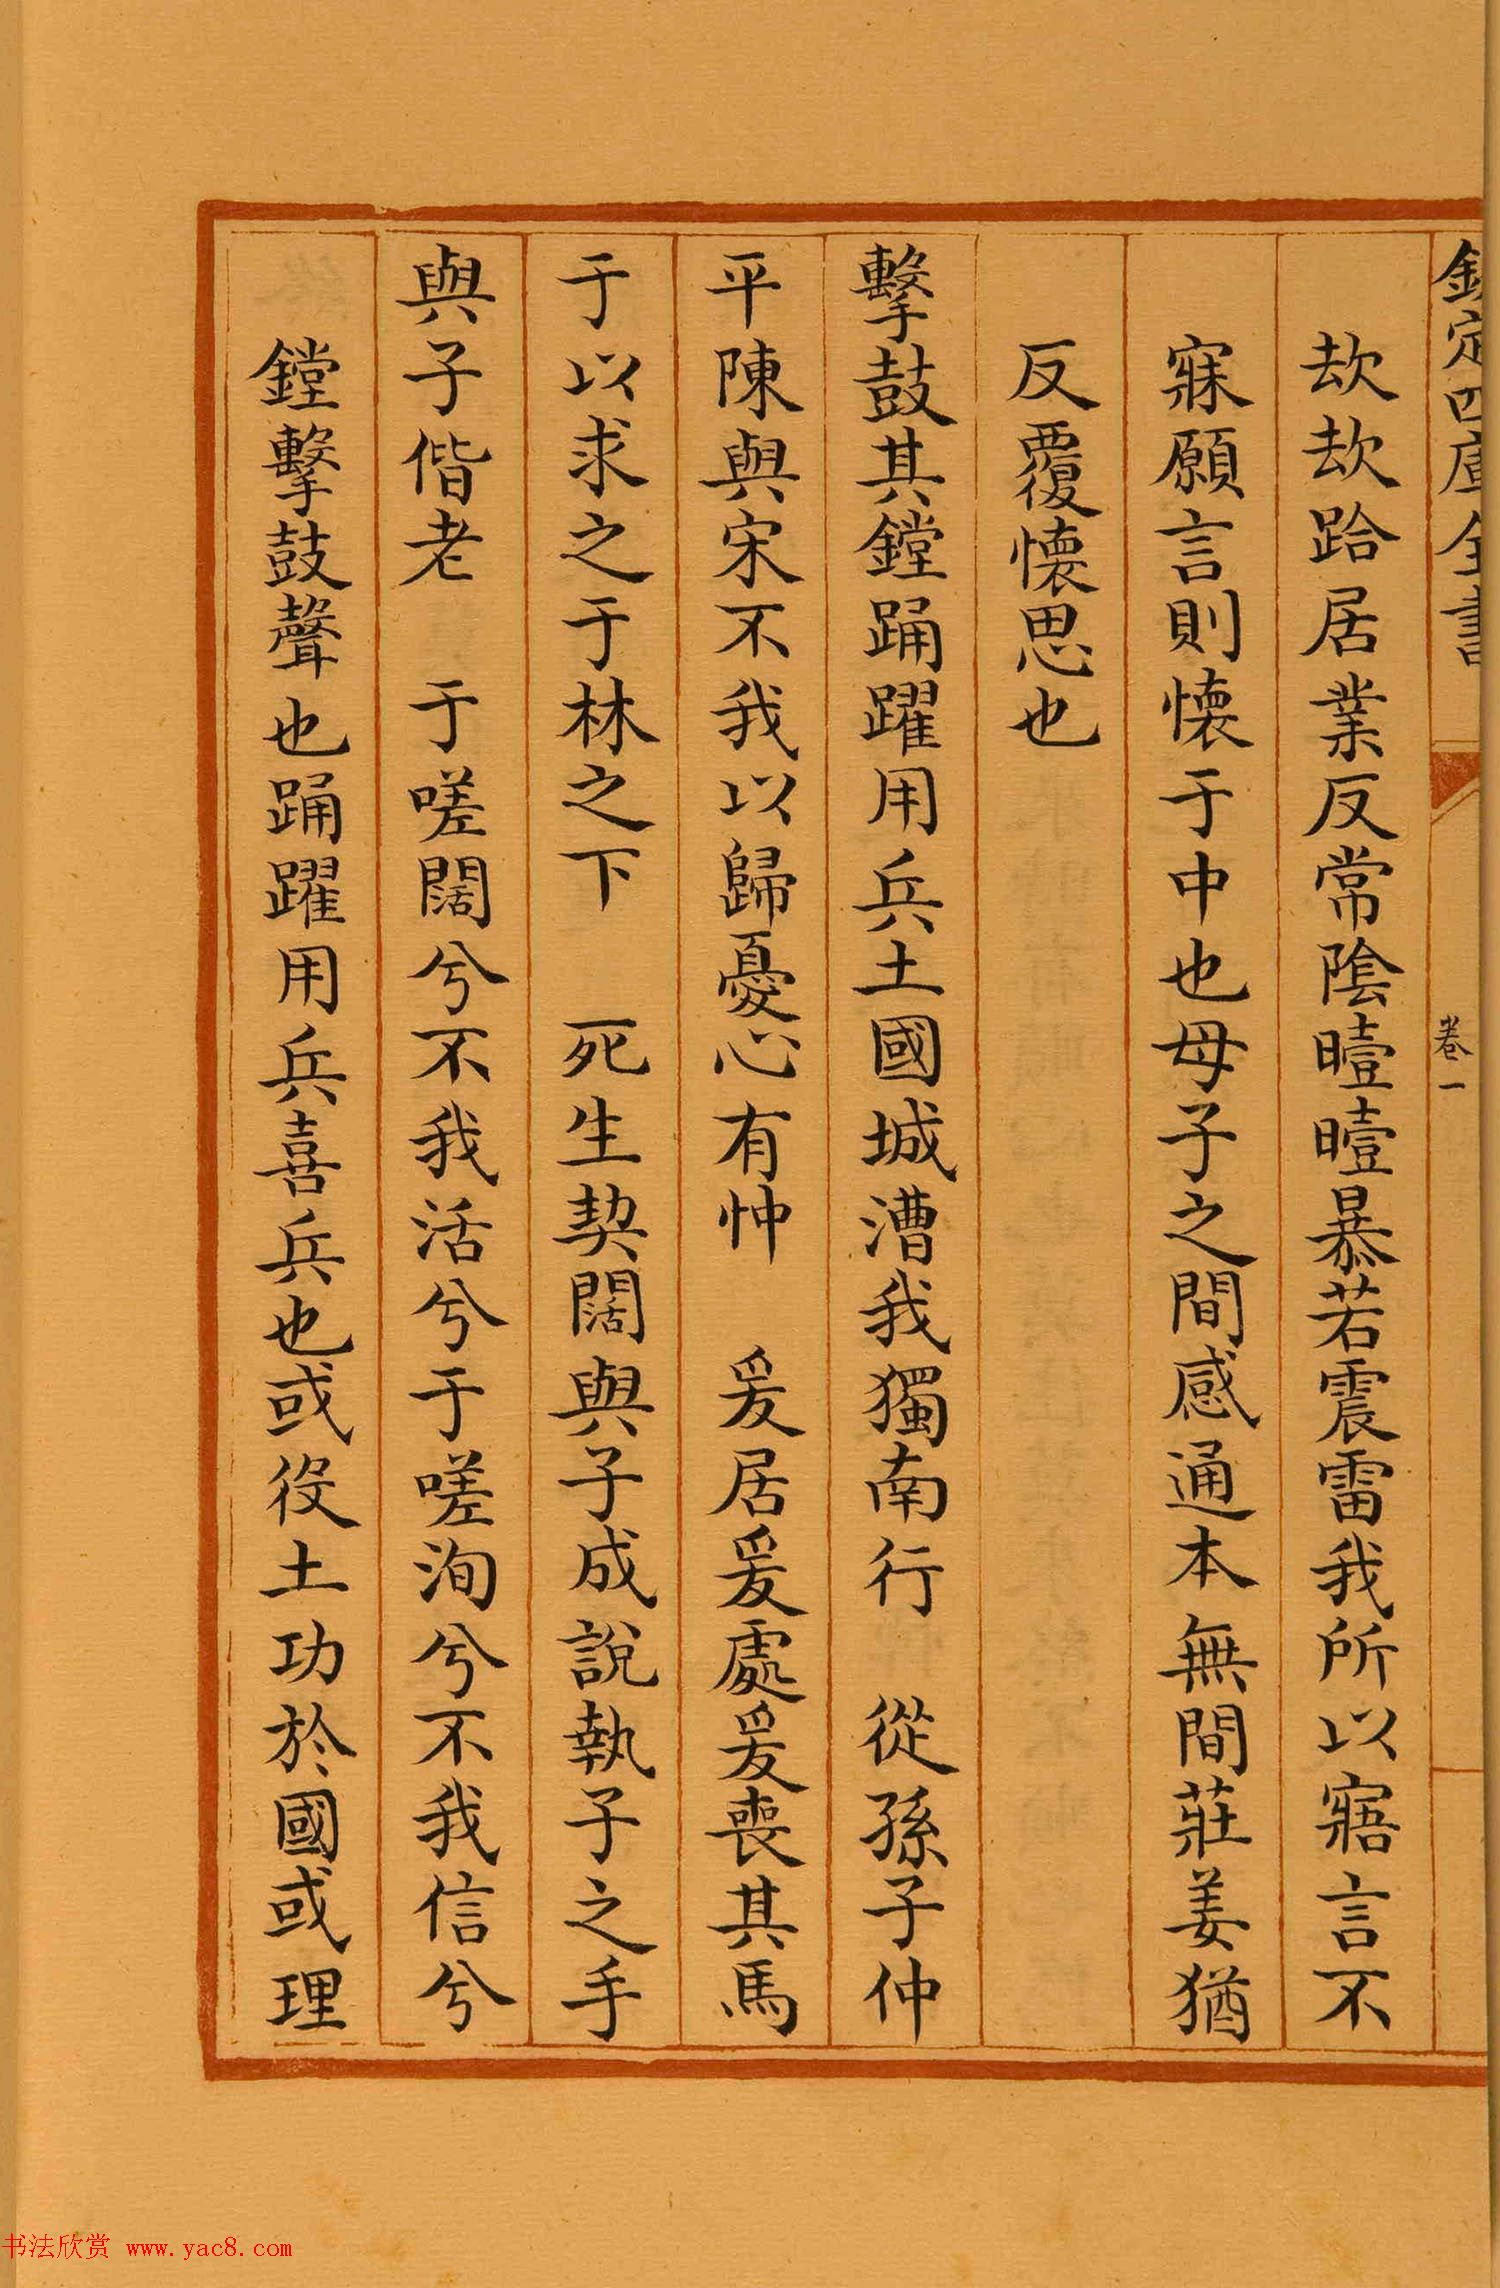 欽定四庫全書
卷一
故故跲居業反常陰曀曀暴若震雷我所以寤言不
寐願言則懷于中也母子之間感通本無間莊姜猶
反覆懷思也
擊鼓其鏜踊躍用兵土國城漕我獨南行　從孫子仲
平陳與宋不我以歸憂心有忡　爰居爰處爰喪其馬
于以求之于林之下　死生契闊與子成說執子之手
與子偕老　于嗟闊兮不我活兮于嗟洵兮不我信兮
鏜擊鼓聲也踊躍用兵喜兵也或役土功於國或理
书法欣赏 www.yac8.com